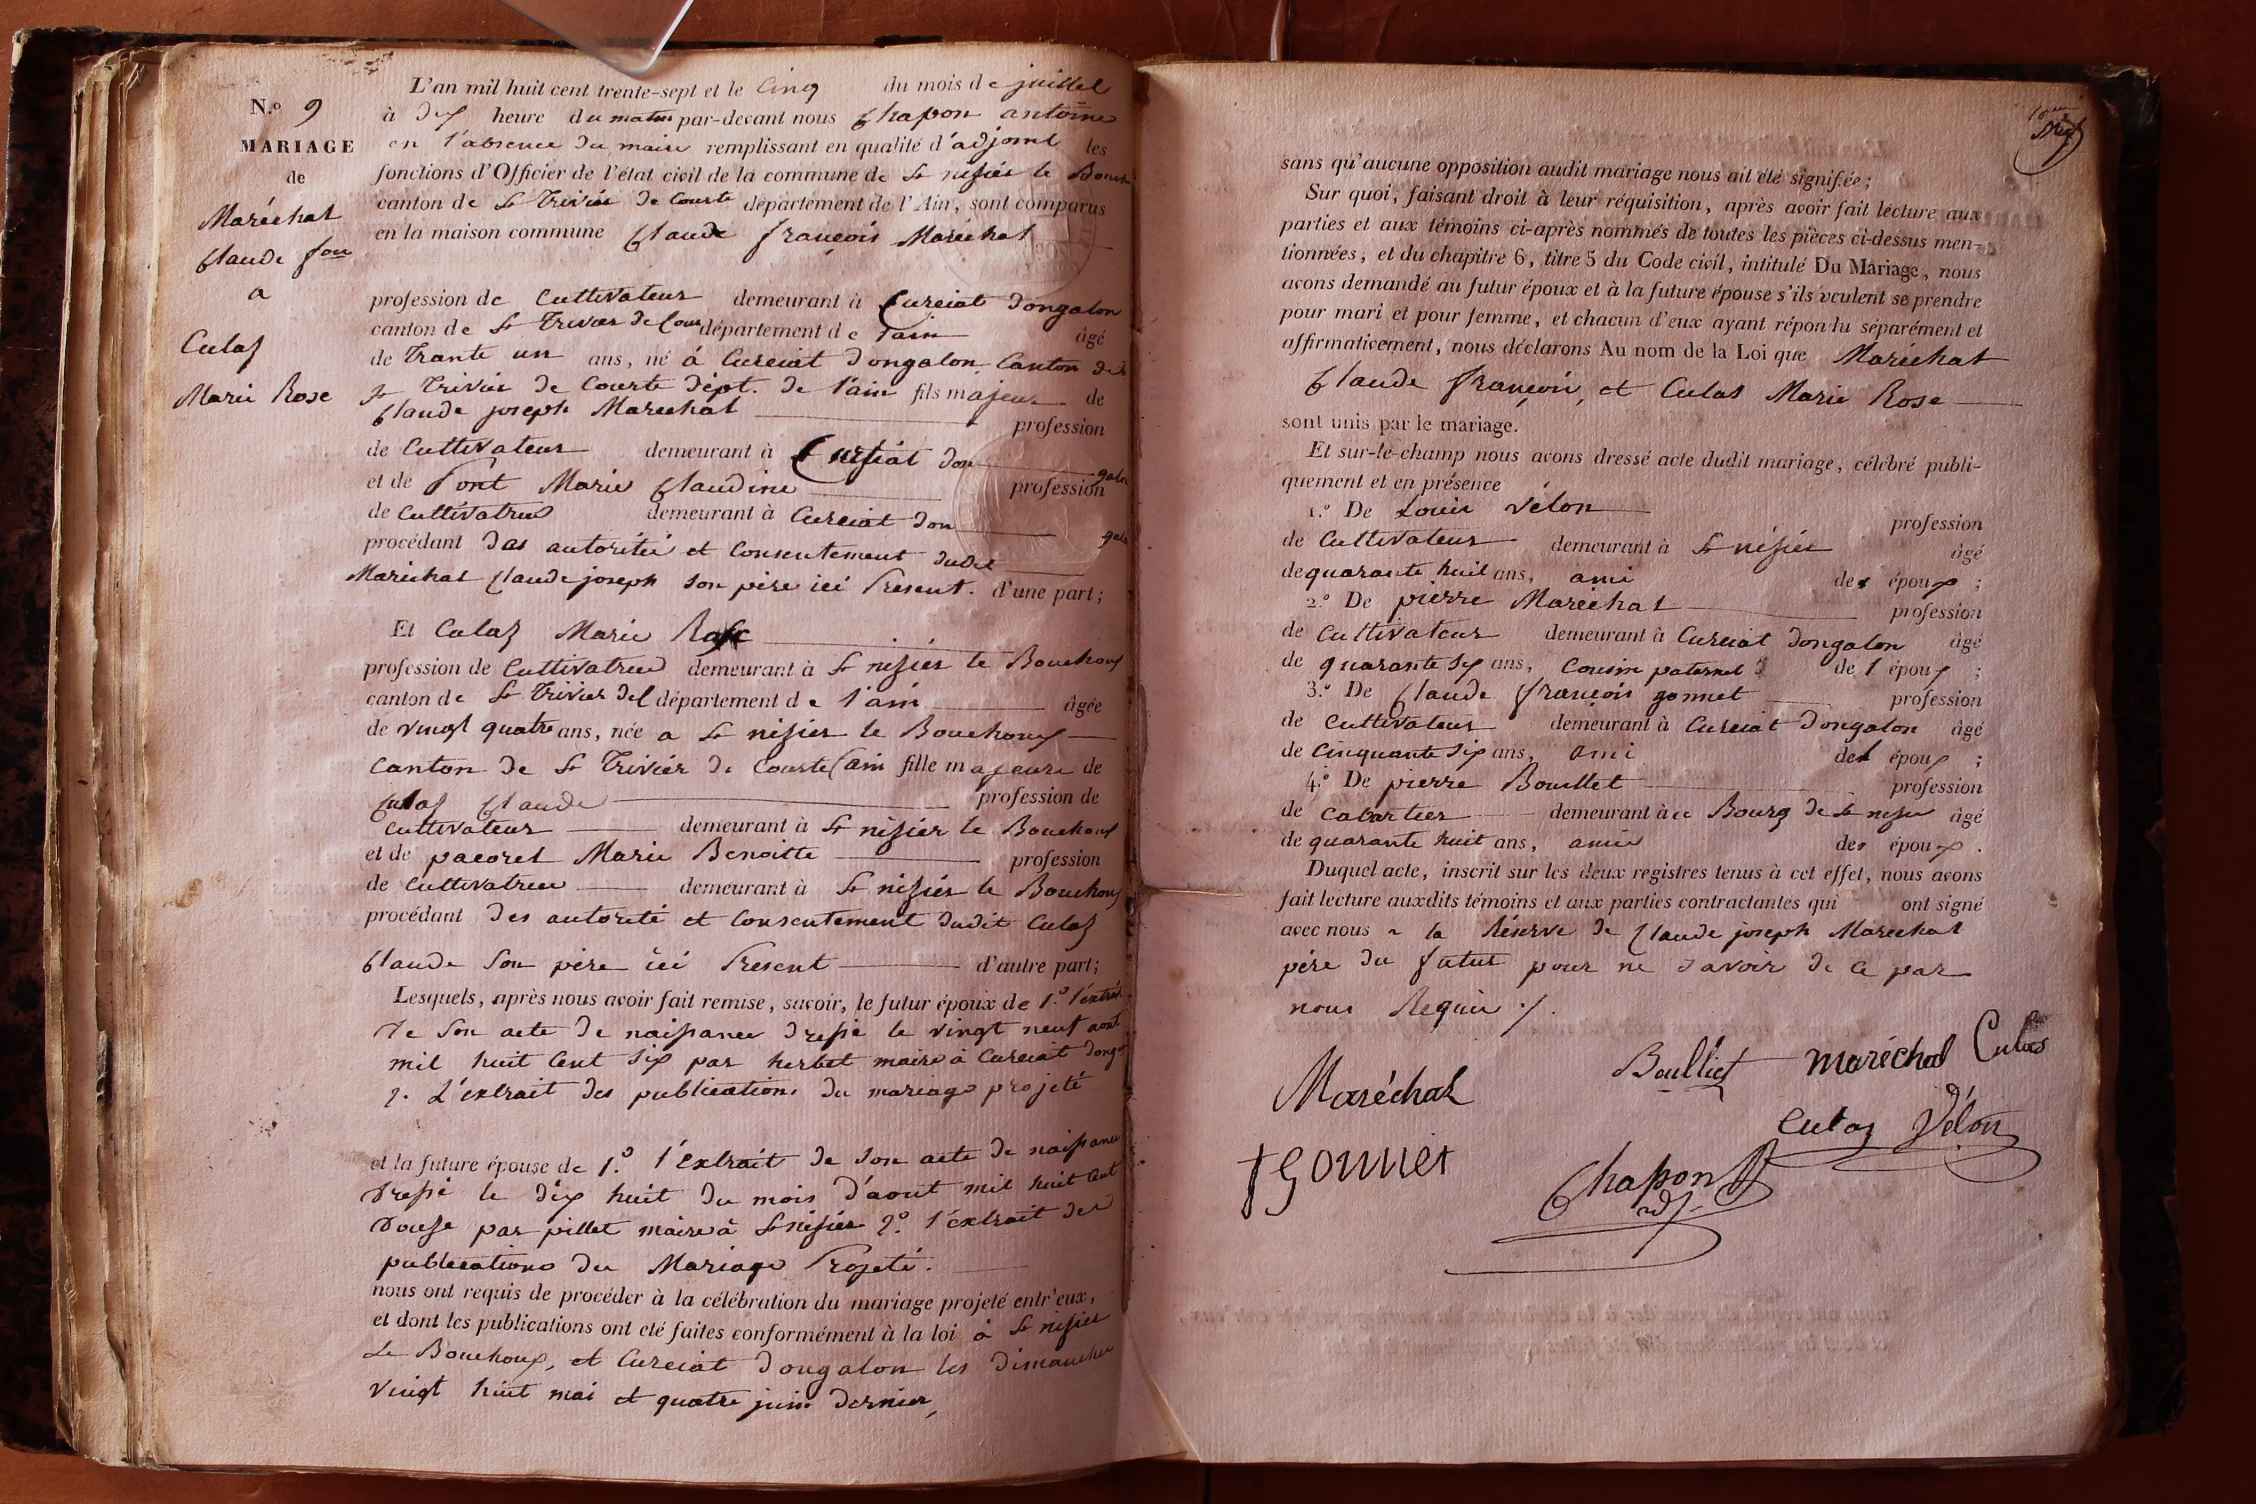 N.o 9
MARIAGE
de
Maréchal
Claude f.ois
a
Culaz
Marie Rose
L'an mil huit cent trente-sept et le Cinq du mois de juillet
à dix heure du matin par-devant nous Chapon antoine
en l'absence du maire remplissant en qualité d'adjoint les
fonctions d'Officier de l'état civil de la commune de St nisier le Bouch
canton de St Trivier de Courte département de l'Ain, sont comparus
en la maison commune Claude françois Maréchal
profession de Cultivateur demeurant à Curciat Dongalon
canton de St Trivier de Cour département de l'ain âgé
de Trante un ans, né à Curciat Dongalon Canton de
St Trivier de Courte dépt. de l'ain fils majeur de
Claude joseph Marechal profession
de Cultivateur demeurant à Cursiat Don
galon
et de Pont Marie Claudine profession
de Cultivatrice demeurant à Curciat Don
galon
procédant das autorité et Consentement dudit
Maréchal Claude joseph son père ici Présent. d'une part;
Et Culaz Marie Rose
profession de Cultivatrice demeurant à St nisier le Bouchoux
canton de St Trivier de C département de l'ain âgée
de vingt quatre ans, née a St nisier le Bouchoux
Canton de St Trivier de Courte l'ain fille majeure de
Culaz Claude profession de
cultivateur demeurant à St nisier le Bouchoux
et de pacoret Marie Benoitte profession
de Cultivatrice demeurant à St nisier le Bouchoux
procédant des autorité et Consentement dudit Culaz
Claude Son père ici Présent d'autre part;
Lesquels, après nous avoir fait remise, savoir, le futur époux de 1.o l'extrait
de Son acte de naissance dressé le vingt neuf aout
mil huit Cent Six par herbet maire à Curciat Donga
2. L'extrait des publications du mariage projeté
et la future épouse de 1.o l'extrait de son acte de naissance
dressé le dix huit du mois d'aout mil huit Cent
douze par pillet maire à St nisier 2.o l'extrait des
publications du Mariage Projeté.
nous ont requis de procéder à la célébration du mariage projeté entr'eux,
et dont les publications ont été faites conformément à la loi à St nisier
Le Bouchoux, et Curciat Dongalon les Dimanches
vingt huit mai et quatre juin dernier,
sans qu'aucune opposition audit mariage nous ait été signifiée;
Sur quoi, faisant droit à leur réquisition, après avoir fait lecture aux
parties et aux témoins ci-après nommés de toutes les pièces ci-dessus men-
tionnées, et du chapitre 6, titre 5 du Code civil, intitulé Du Mariage, nous
avons demandé au futur époux et à la future épouse s'ils veulent se prendre
pour mari et pour femme, et chacun d'eux ayant répondu séparément et
affirmativement, nous déclarons Au nom de la Loi que Maréchal
Claude françois, et Culas Marie Rose
sont unis par le mariage.
Et sur-le-champ nous avons dressé acte dudit mariage, célébré publi-
quement et en présence
1.o De Louis vélon profession
de Cultivateur demeurant à St nisier âgé
de quarante huit ans, ami des époux;
2.o De pierre Maréchal profession
de Cultivateur demeurant à Curciat Dongalon âgé
de quarante Six ans, Cousin paternel de l époux;
3.o De Claude françois gonnet profession
de Cultivateur demeurant à Curciat Dongalon âgé
de Cinquante Six ans, ami de l époux;
4.o De pierre Boullet profession
de Cabartier demeurant à u Bourg de St nisier âgé
de quarante huit ans, amis des époux.
Duquel acte, inscrit sur les deux registres tenus à cet effet, nous avons
fait lecture auxdits témoins et aux parties contractantes qui ont signé
avec nous a la Réserve de Claude joseph Marechal
père du futur pour ne savoir de ce par
nous Requis ./.
Maréchal Boulliet maréchal Culas
Culaz Vélon
fgonnet Chapon adj.